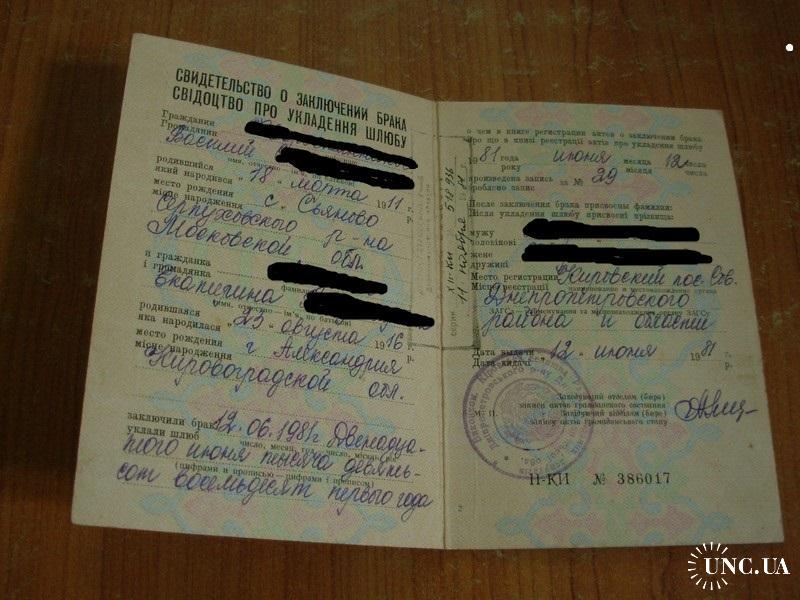 СВИДЕТЕЛЬСТВО О ЗАКЛЮЧЕНИИ БРАКА
СВІДОЦТВО ПРО УКЛАДЕННЯ ШЛЮБУ
Гражданин
Громадянин
Василий
имя, отчество – ім'я, по батькові
родившийся "18" марта 1911 г.
який народився р.
место рождения с. Съяново
місце народження
Серпуховского р-на
Московской обл.
и гражданка
і громадянка
Екатерина
имя, отчество – ім'я, по батькові
родившаяся "23" августа 1916 г.
яка народилась р.
место рождения г. Александрия
місце народження
Кировоградской обл.
заключили брак 12.06.1981г Двенадца-
уклали шлюб число, месяц, год
того июня тысяча девять-
(цифрами и прописью – цифрами і прописом)
сот восемьдесят первого года
о чем в книге регистрации актов о заключении брака
про що в книзі реєстрації актів про укладення шлюбу
1981 года июня месяца 12 числа
року місяця числа
произведена запись за № 29
зроблено запис
После заключения брака присвоены фамилии:
Після укладення шлюбу присвоєні прізвища:
мужу
чоловікові
жене
дружині
Место регистрации Кировский пос. Сов.
Місце реєстрації
Днепропетровского
района и области
Дата выдачи 12 июня 1981 г.
Дата видачі р.
Заведующий отделом (бюро)
записи актов гражданского состояния
М. П. Завідуючий відділом (бюро)
запису актів громадянського стану
II-КИ № 386017
2
UNC.UA